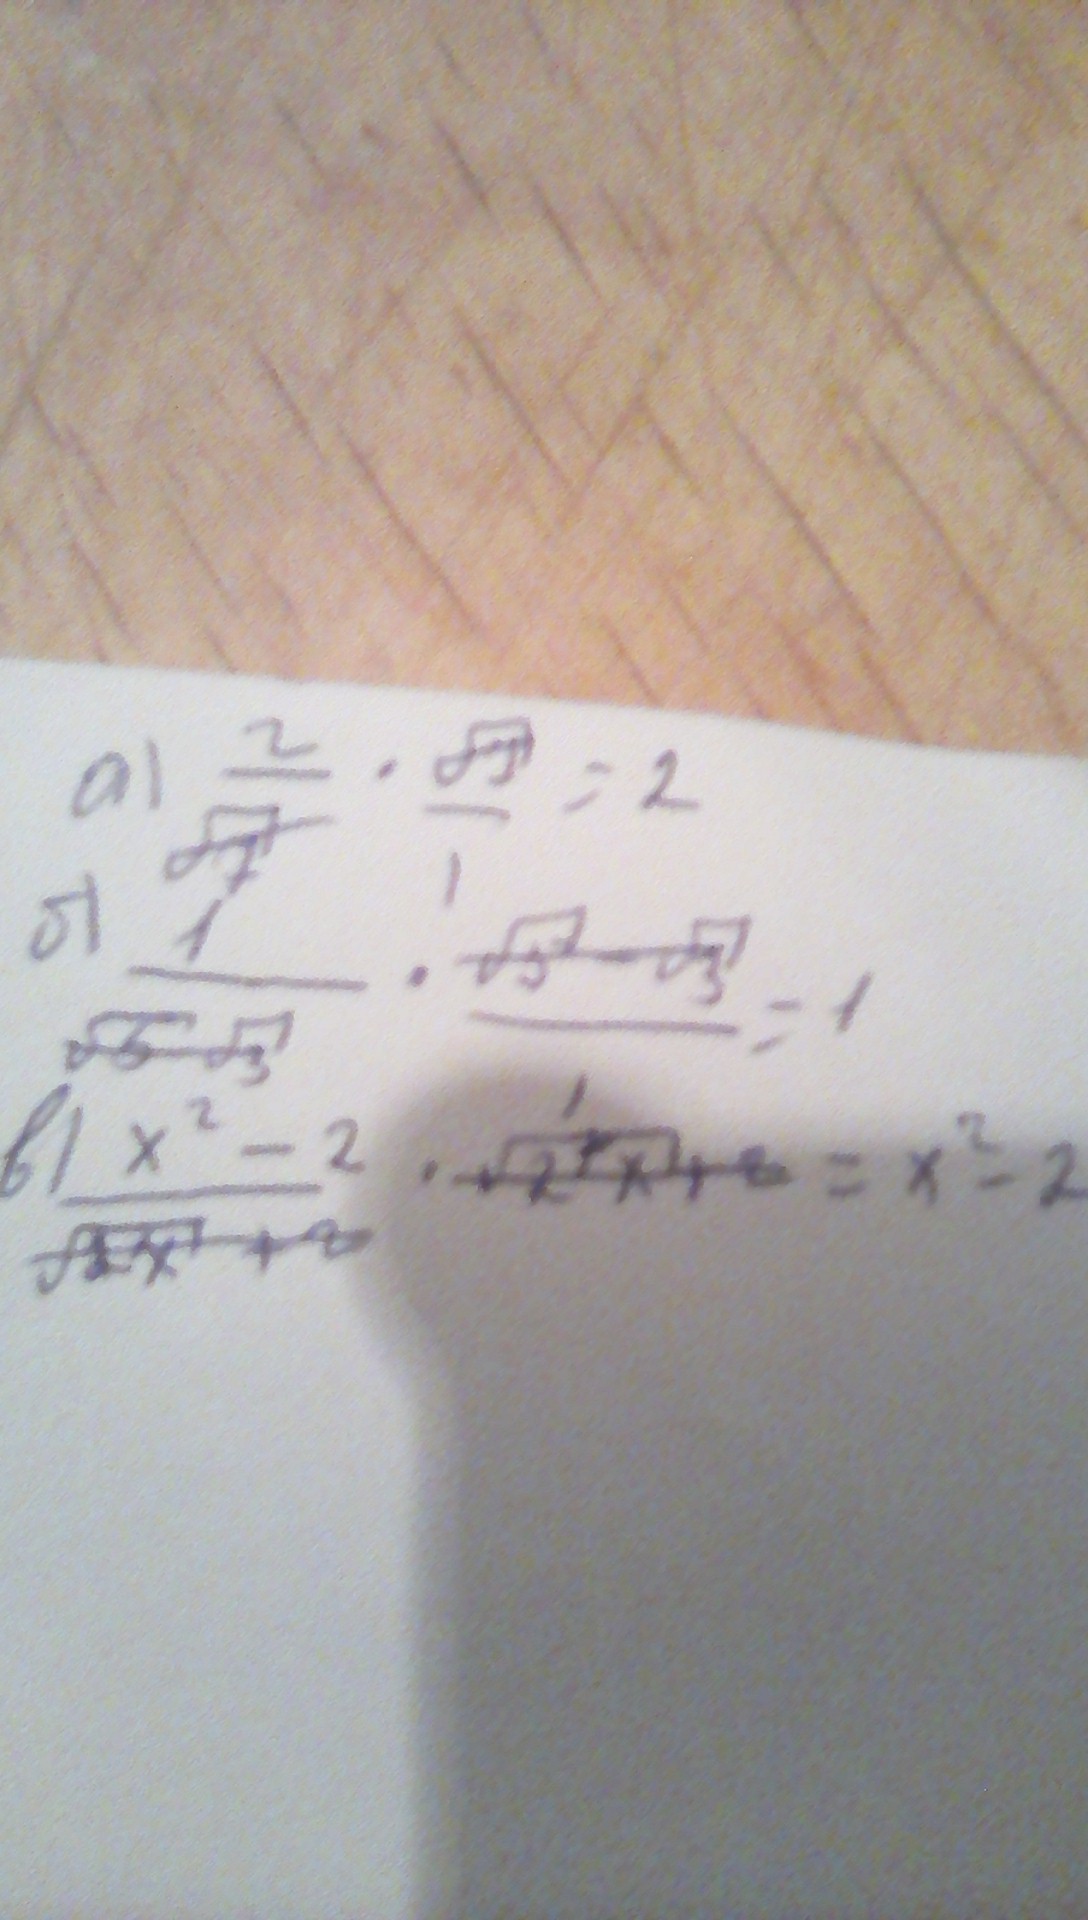 а) 2/√7 · √7/1 = 2
б) 1/(√5-√3) · (√5-√3)/1 = 1
в) (x²-2)/(√2x+2) · √2x+2 = x²-2